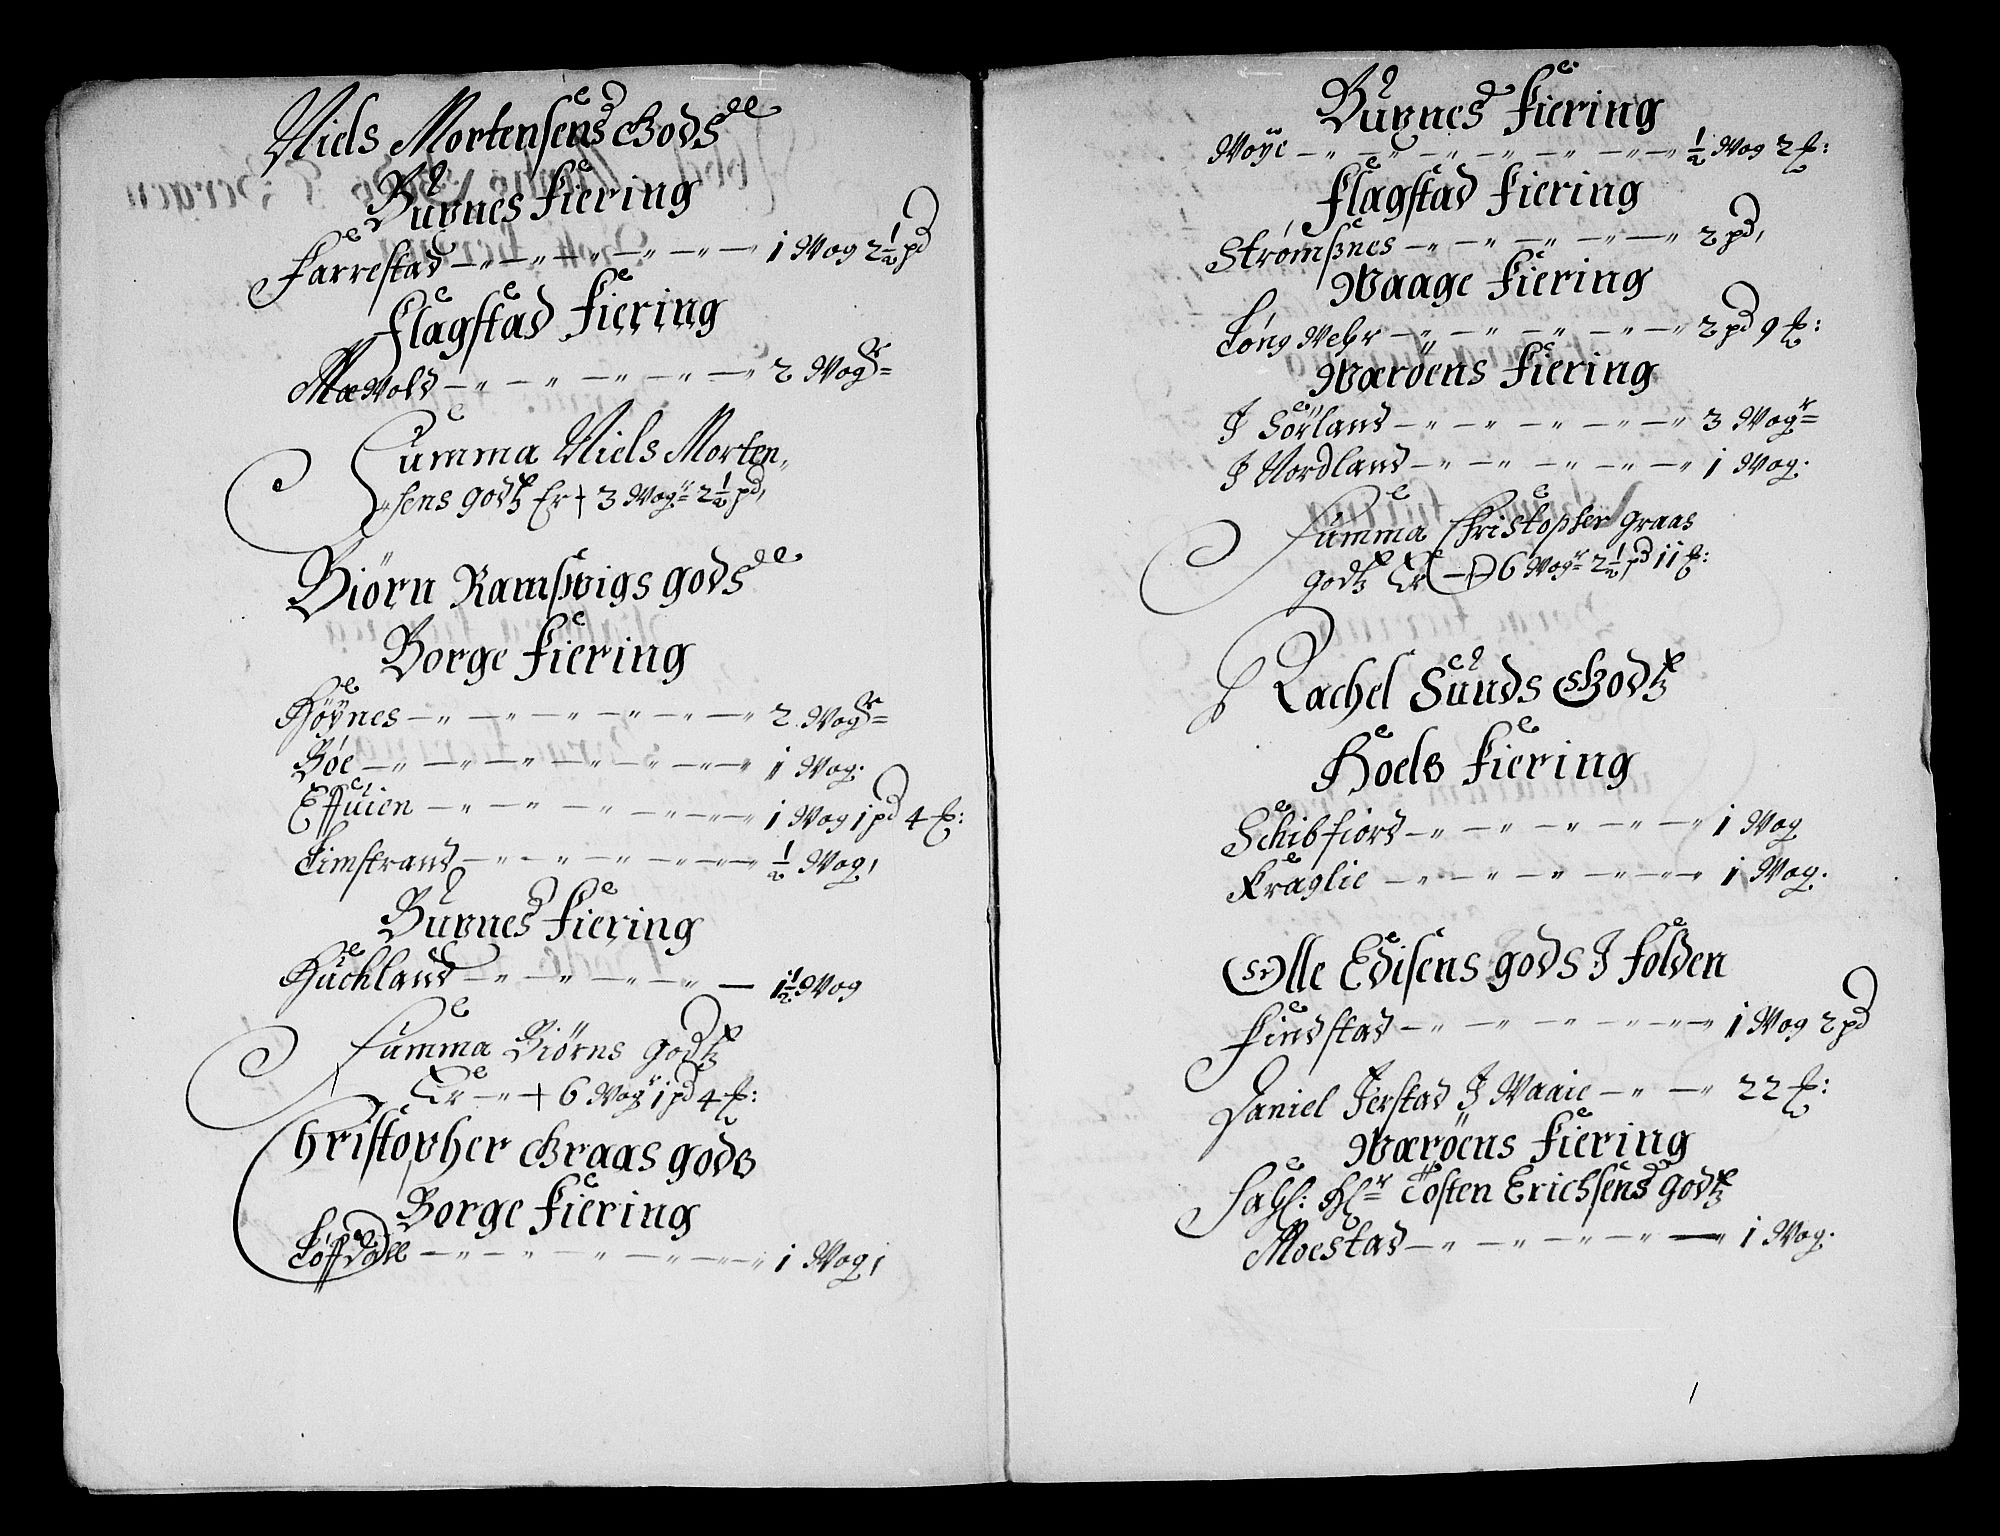 Niels Mortensens Gods
Buxnes Fiering
Farrestad — 1 Wog 2½ pd
Flagstad Fiering
Mæwold — 2 Wogr
Summa Niels Morten,
sens godtz Er + 3 Wogr 2½ pd,
Biörn Ramswigs gods
Borge Fiering
Höynes — 2 Wogr
Böe — 1 Wog.
Effuien — 1 Wog 1 pd 4 ℔:
Limstrand — ½ Wog,
Buxnes Fiering
Huchland — 1½ Wog
Summa Biörns godtz
Er — + 6 Wogr 1 pd 4 ℔:
Christopher Graas gods
Borge Fiering
Löffdall — 1 Wog,
Buxnes Fiering
Woye — ½ Wog 2 ℔:
Flagstad Fiering
Strømsnes — 2 pd,
Waage Fiering
Long Wehr — 2 pd 9 ℔:
Wæröens Fiering
J Sörland — 3 Wogr
J Nordland — 1 Wog.
Summa Christopher graas
godtz Er — 6 Wogr 2½ pd 11 ℔:
Rachel Sunds Godtz
Hoels Fiering
Schibfiord — 1 Wog
Kraglie — 1 Wog.
Olle Edisens gods J Folden
Findstad — 1 Wog 2 pd
Daniel Jerstad J Waaie — 22 ℔:
Wæröens Fiering
Sahl: Hr Tosten Erichsens godtz
Moestad — 1 Wog.